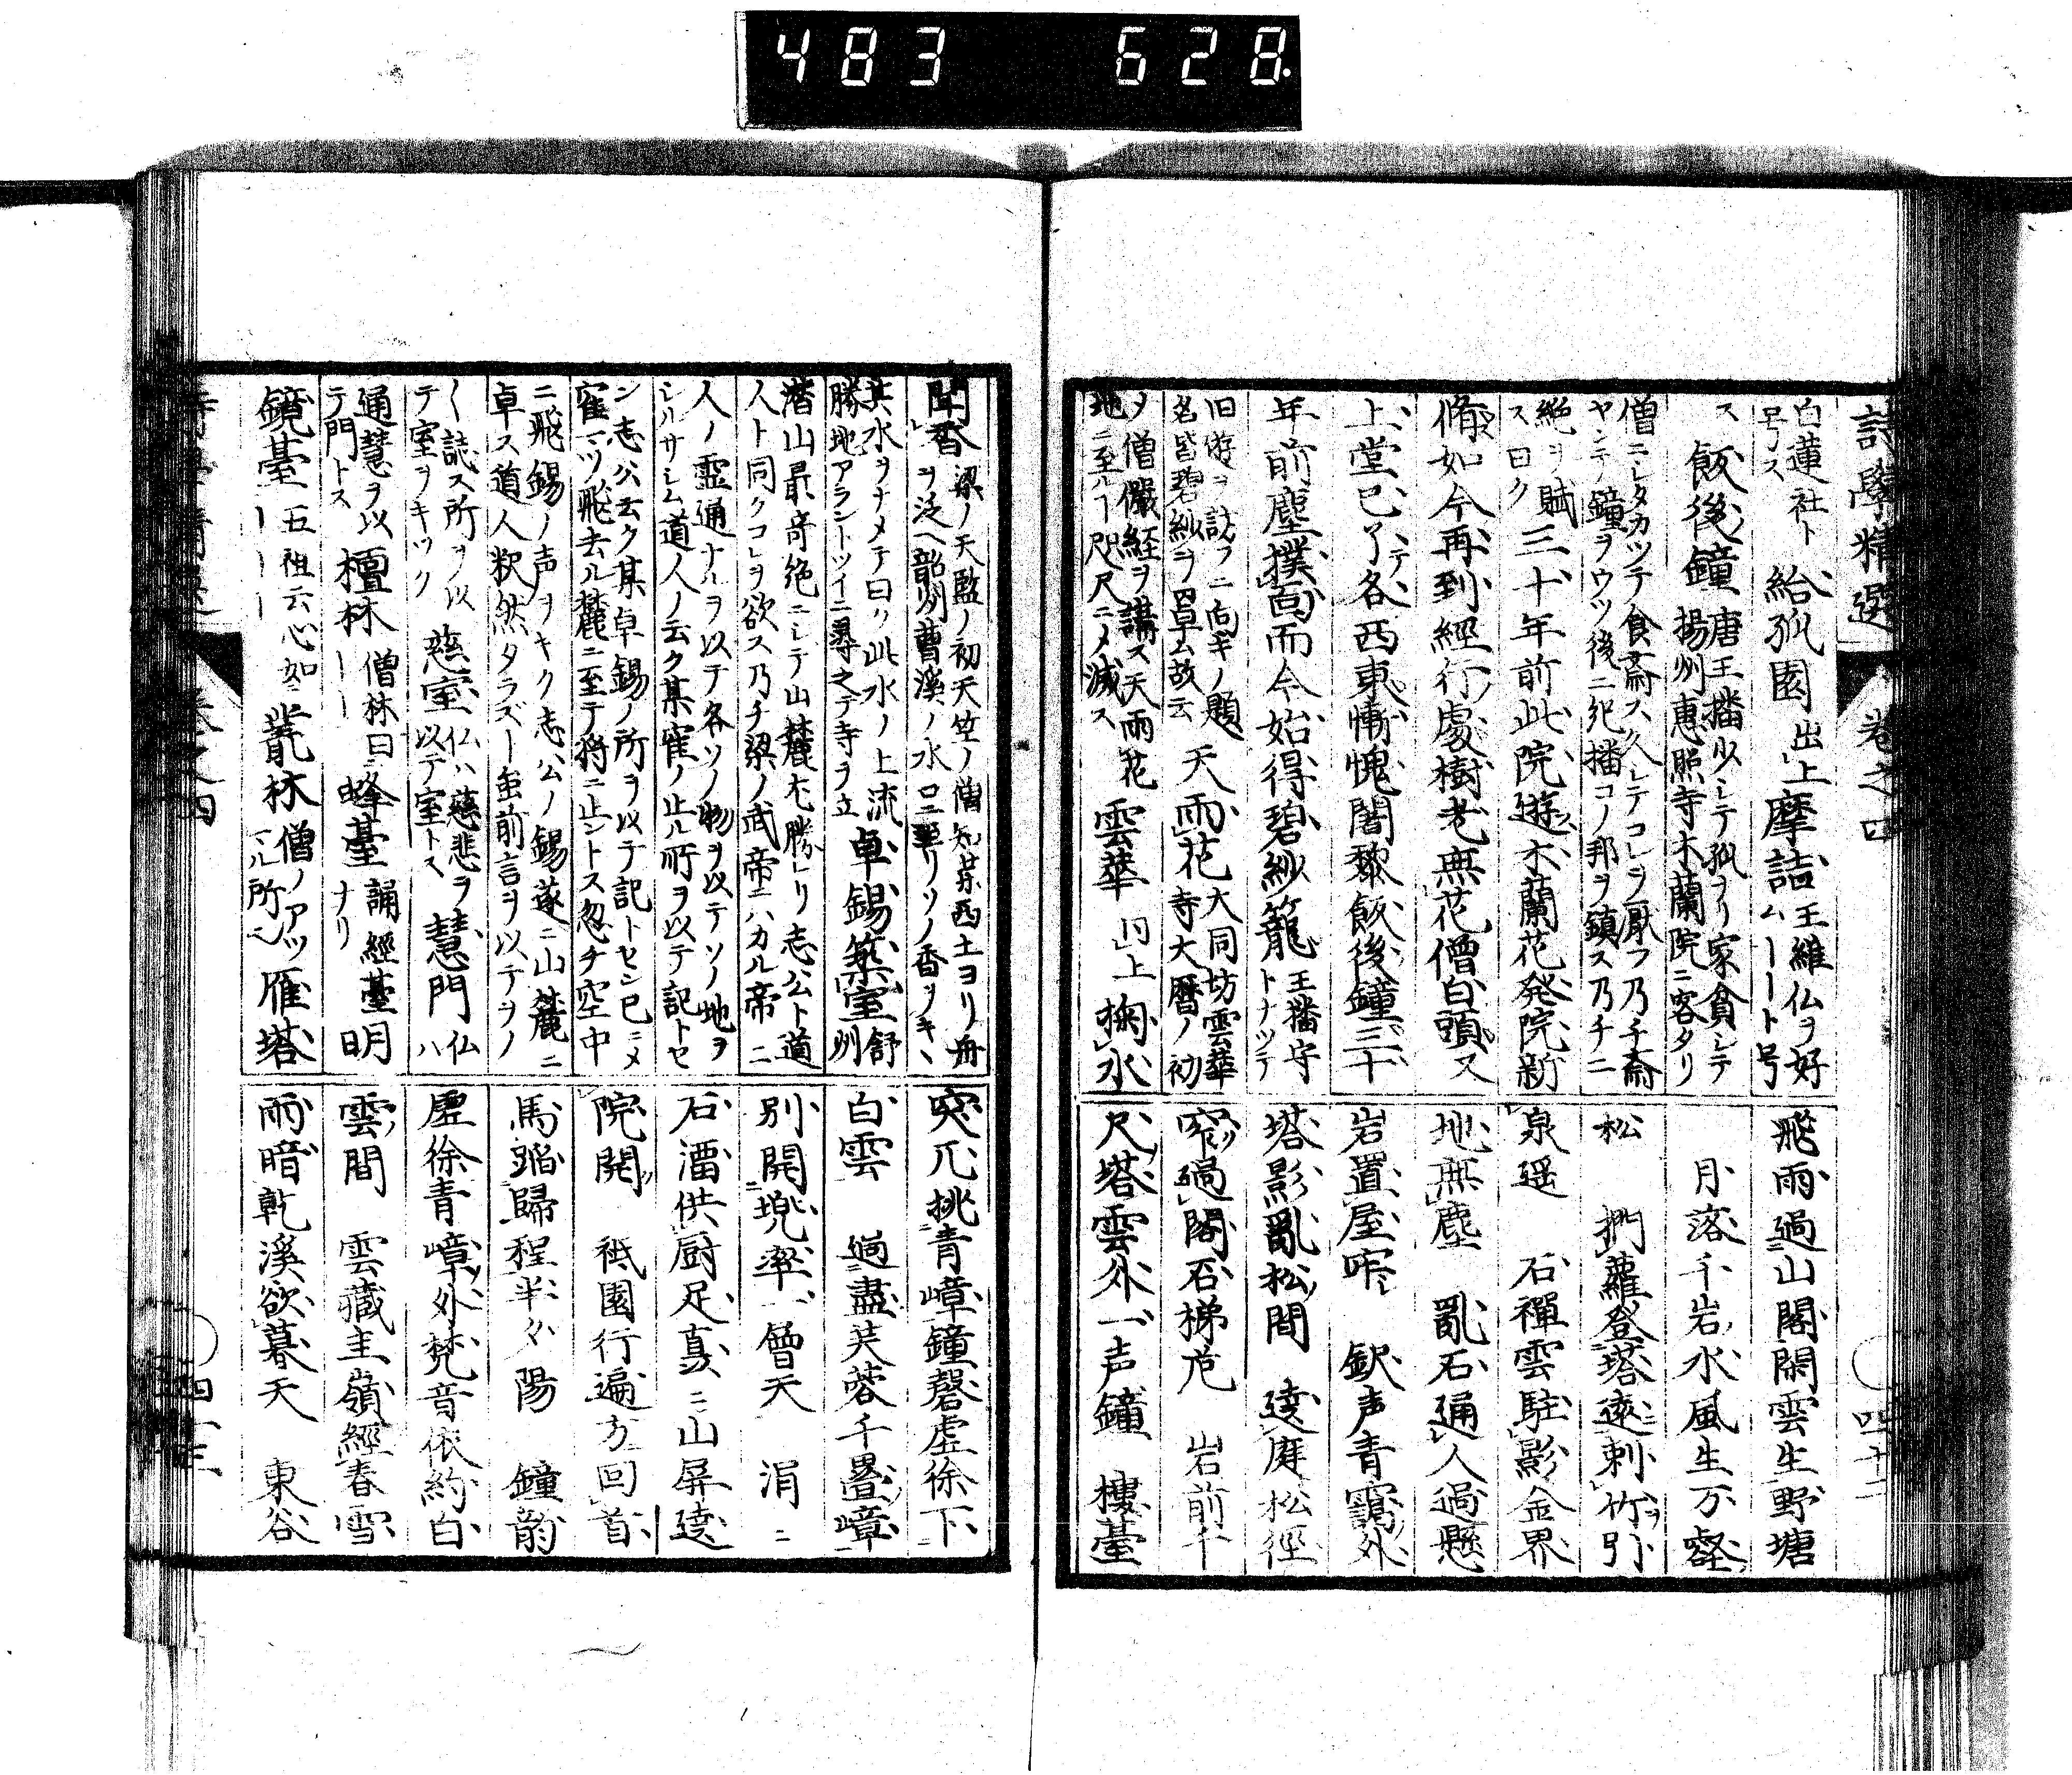 483 628
詩學精選 卷之四 四十二
白蓮社ト号ス 給孤園 出上 摩詰 王維仏ヲ好ムーート号
ス 飯後鐘 唐王播少シテ孤ヲリ家貧シテ揚州惠照寺木蘭院ニ客タリ
僧ニシタカツテ食斎ス久シテコレヲ厭フ乃チ斎ヤンテ鐘ヲウツ後ニ播コノ邦ヲ鎮ス乃チ二
絶ヲ賦ス曰ク 三十年前此院遊木蘭花発院新
脩如今再到經行處樹老無花僧白頭ス
上堂已了各西東慚愧闍黎飯後鐘三十
年前塵撲面而今始得碧紗籠 王播守トナツテ
旧遊ヲ訪フニ向キノ題名皆碧紗ヲ罩ム故云 天雨花 大同坊雲華寺大暦ノ初
僧儼経ヲ講ス天雨花地ニ至ルフ咫尺ニメ滅ス 雲華 川上 掬水
飛雨過山閣閑雲生野塘
月落千岩水風生万壑
松 捫蘿登塔遠刺竹引
泉遥 石禪雲駐影金界
地無塵 亂石通人過懸
岩置屋牢 欽声青靄外
塔影亂松間 遶庭松徑
窄過閣石梯危 岩前千
尺塔雲外一声鐘 樓臺
聞香 梁ノ天監ノ初天竺ノ僧知藥西土ヨリ舟ヲ泛ヘ韶州曹溪ノ水口ニ至リソノ香ヲキヽ
其水ヲナメテ曰ク此水ノ上流勝地アラントツイニ尋之テ寺ヲ立 卓錫築室 舒州
潛山最奇絶ニシテ山麓尤勝レリ志公ト道人ト同クコレヲ欲ス乃チ梁ノ武帝ニハカル帝二
人ノ霊通ナルヲ以テ各ソノ物ヲ以テソノ地ヲシルサシム道人ノ云ク某隺ノ止ル所ヲ以テ記トセ
ン志公云ク某卓錫ノ所ヲ以テ記トセン已ニメ隺マツ飛去ル麓ニ至テ将ニ止ントス忽チ空中
ニ飛錫ノ声ヲキク志公ノ錫遂ニ山麓ニ卓ス道人釈然タラズー虽前言ヲ以テヲノ
〳〵誌ス所ヲ以テ室ヲキツク 慈室 仏ハ慈悲ヲ以テ室トス 慧門 仏ハ
通慧ヲ以テ門トス 檀林 僧林曰ーー 峰臺 誦經臺ナリ 明
鏡臺 五祖云心如ーーー 叢林 僧ノアツマル所ー 雁塔
突兀挑青嶂鐘磬虚徐下
白雲 過盡芙蓉千疊嶂
別開兜率一層天 涓ニ
石溜供厨足真ニ山屏遶
院開 祇園行遍方回首
馬蹄歸程半夕陽 鐘韵
虚徐青嶂外梵音依約白
雲間 雲藏主嶺經春雪
雨暗乾溪欲暮天 東谷